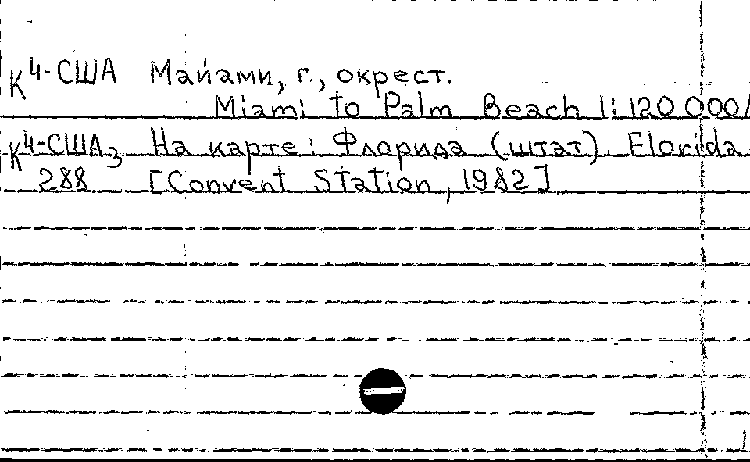 К4-США Майами, г., окрест.
Miami to Palm Beach 1:120 000/
К4-США3 На карте: Флорида (штат). Florida
288 [Convent Station, 1982]